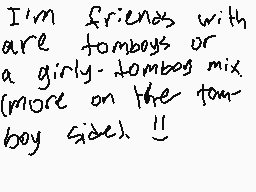 I'm friends with
are tomboys or
a girly-tomboy mix
(more on the tom-
boy side) !!